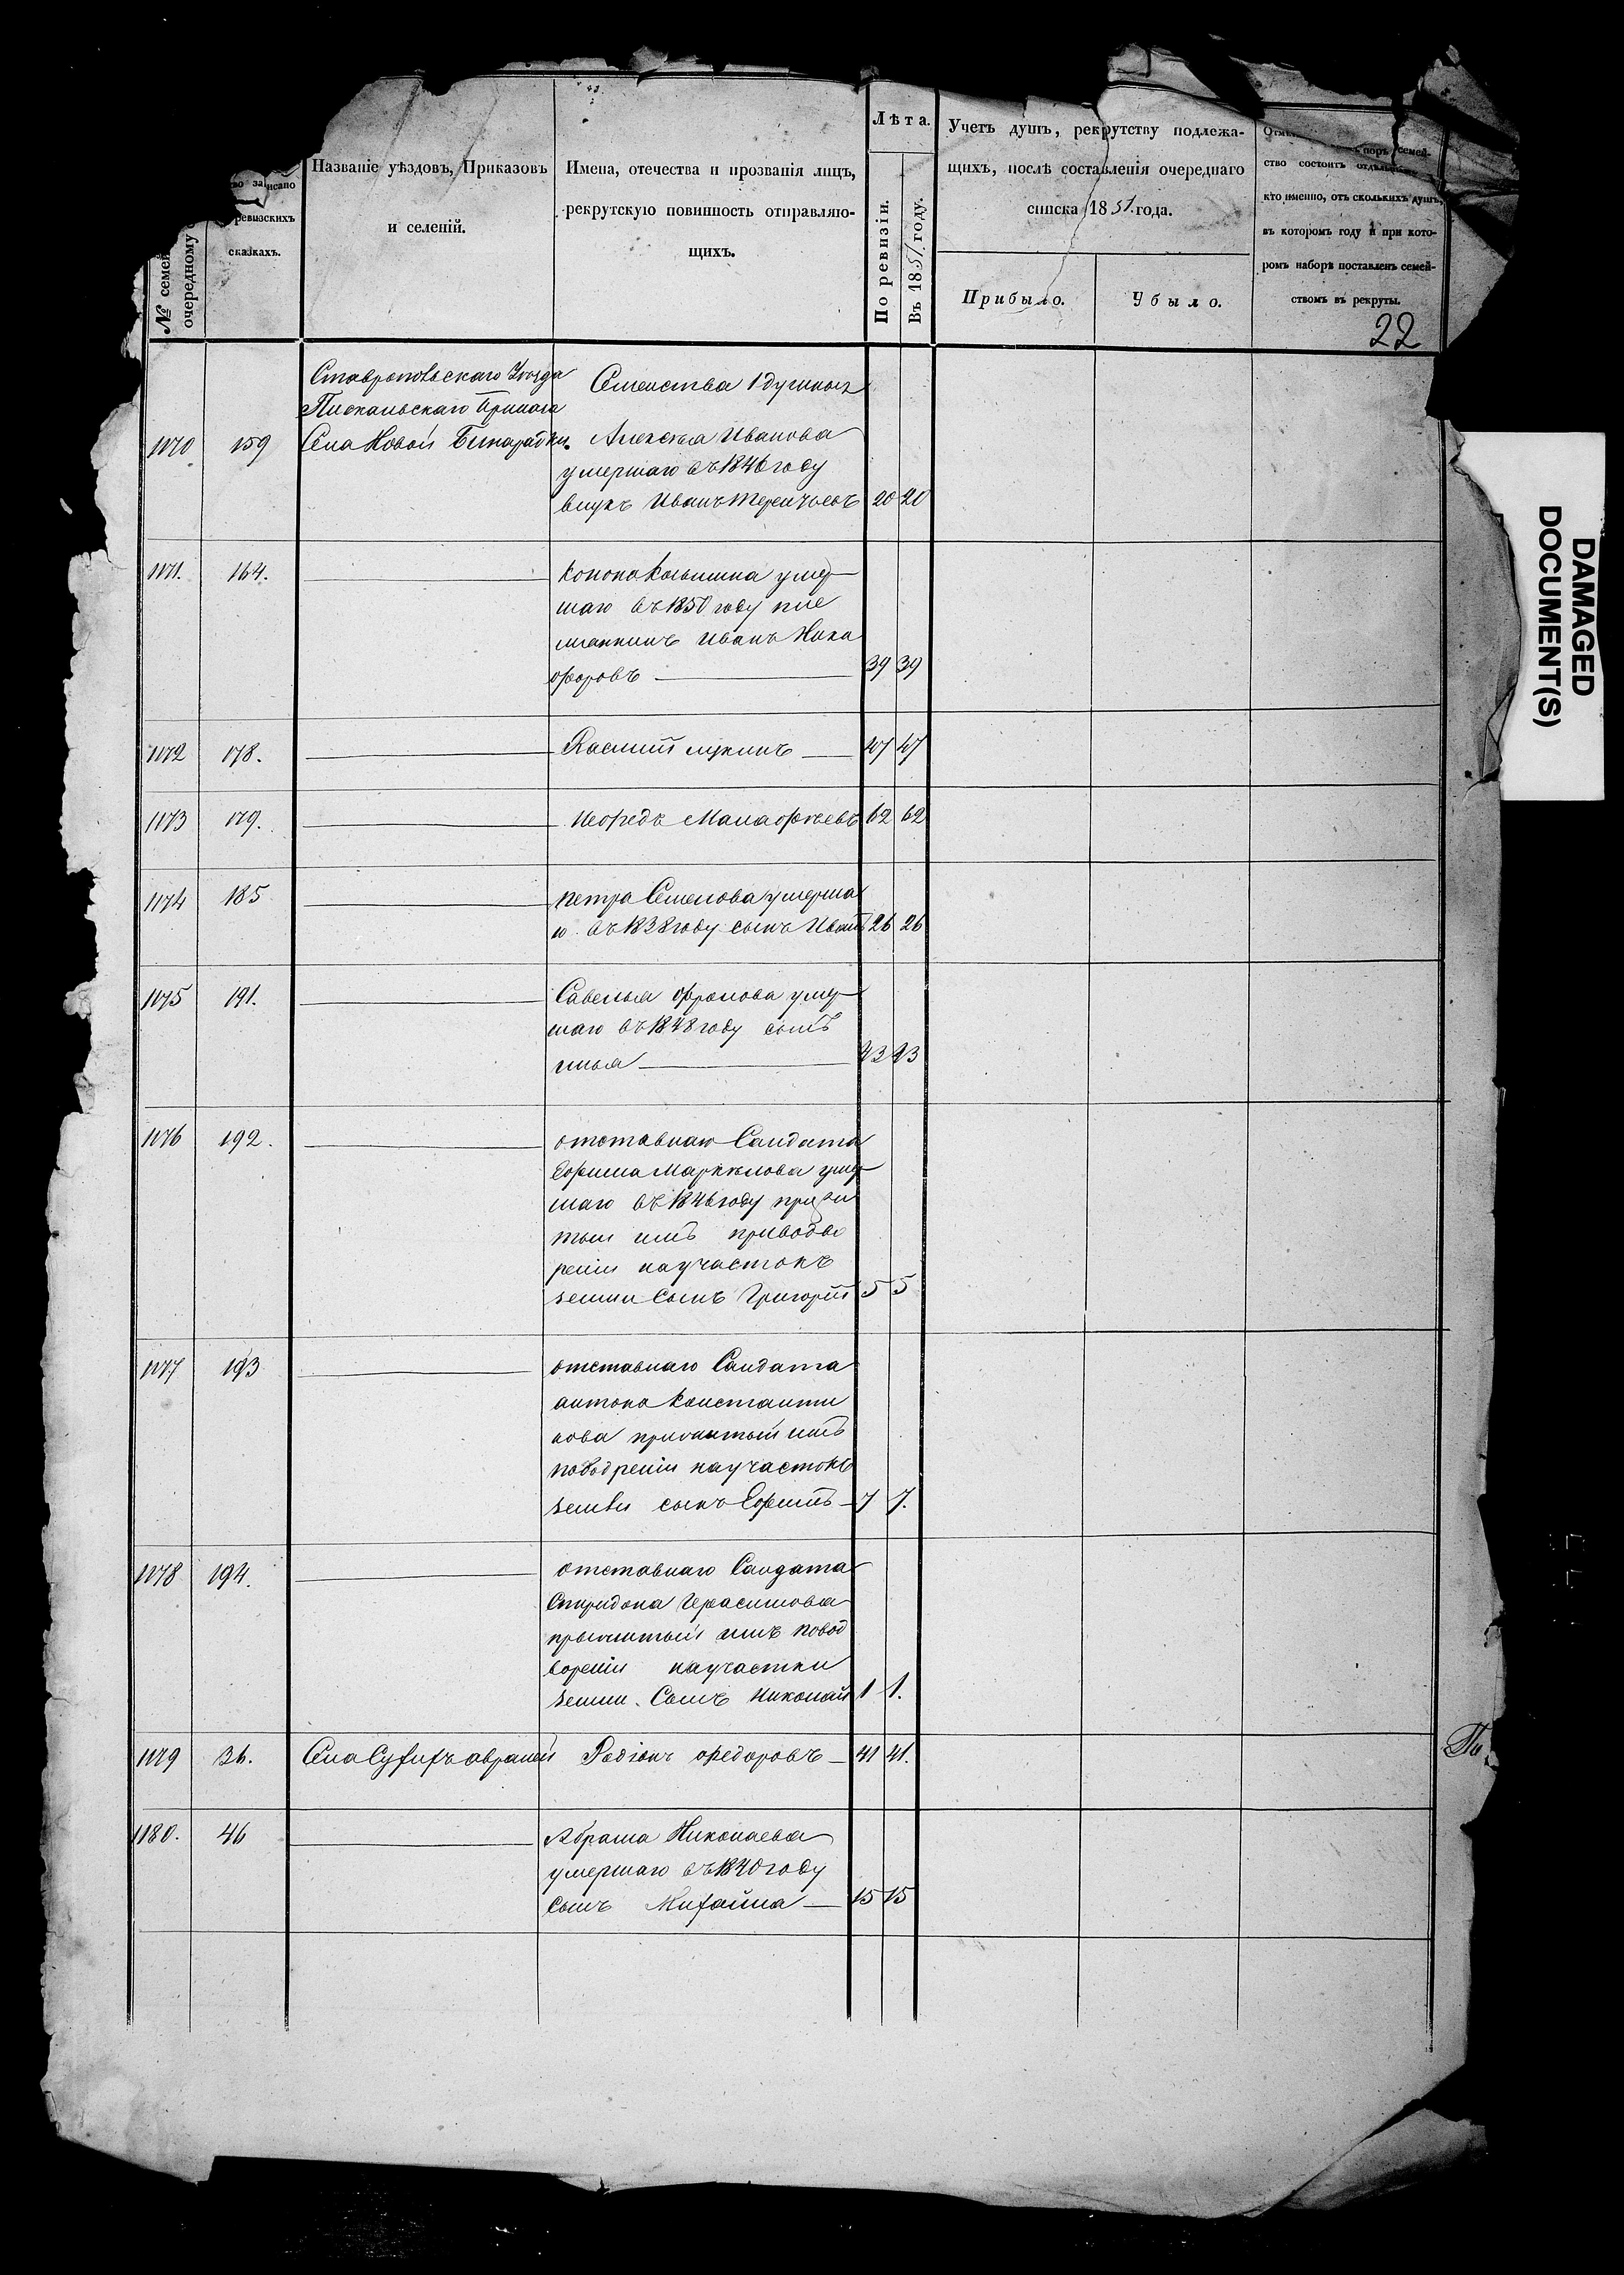 № семей
очередному
во записано
ревизскихъ
сказкахъ.
Названіе уѣздовъ, Приказовъ
и селеній.
Имена, отечества и прозванія лицъ,
рекрутскую повинность отправляю-
щихъ.
Лѣта.
По ревизіи.
Въ 1851 году.
Учетъ душъ, рекрутству подлежа-
щихъ, послѣ составленія очереднаго
списка 1851 года.
Прибыло.
Убыло.
поръ семей-
ство состоитъ
кто именно, отъ сколькихъ душъ,
въ которомъ году и при кото-
ромъ наборѣ поставленъ семей-
ствомъ въ рекруты.
22
Ставропольскаго Уѣзда
Пискальскаго Приказа
Села Новой Бинарадки.
Семейства 1 душныя
1170 159 Алексѣя Иванова
умершаго въ 1846 году
внукъ Иванъ Терентьевъ 20 20
1171. 164. Конона Кузьмина умер
шаго въ 1850 году пле
мянникъ Иванъ Ника
форовъ 39 39
1172 178. Василій Лукинъ 47 47
1173 179. Нефедъ Малафѣевъ 62 62
1174 185 Петра Семенова умерша
го въ 1838 году сынъ Иванъ 26 26
1175 191. Савелья Фролова умер
шаго въ 1848 году сынъ
Илья 43 43
1176 192. отставнаго Салдата
Ефима Маркелова умер
шаго въ 1846 году
сынъ Григорій 5 5
1177 193 отставнаго Салдата
антона Константи
нова
на участокъ
земли сынъ Ефимъ 7 7.
1178 194. отставнаго Салдата
Спиридона Герасимова
имъ повод
воренія на участки
земли. Сынъ Николай 1 1.
1179 36. Села Родіонъ Федоровъ 41 41.
1180. 46 Абрама Николаева
умершаго въ 1840 году
Сынъ Михайла 15 15
По
DAMAGED
DOCUMENT(S)